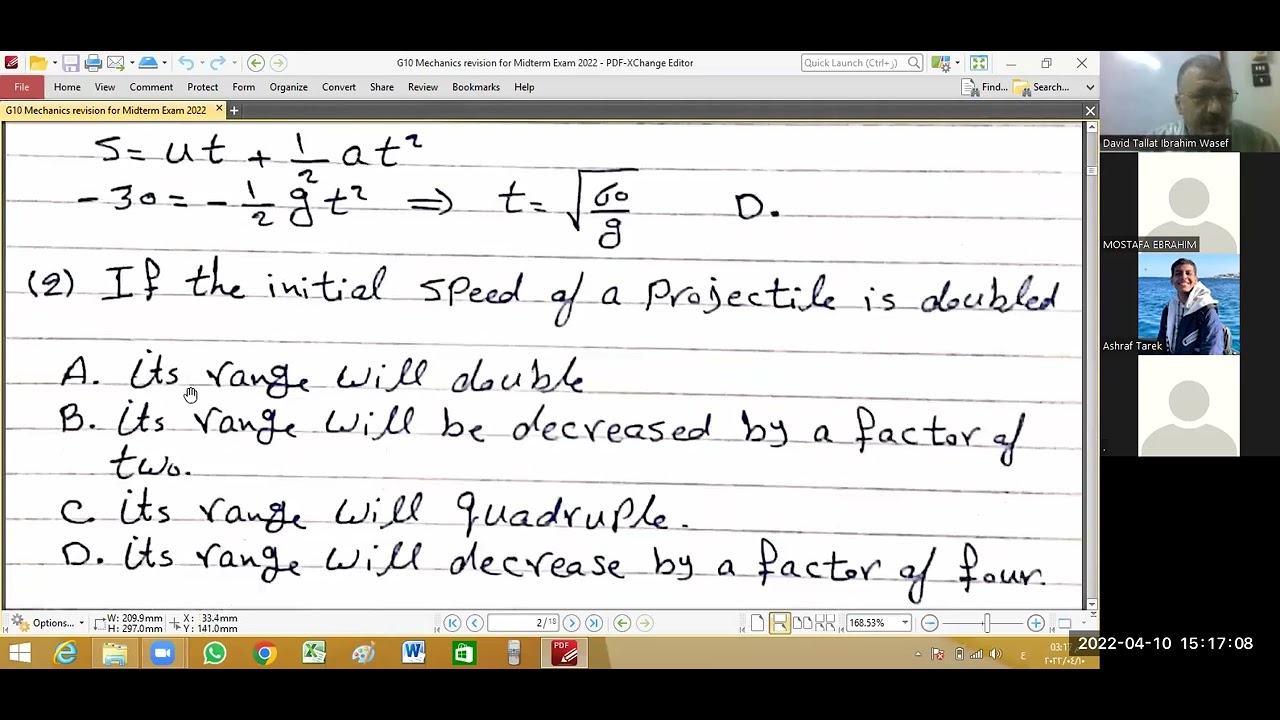 G10 Mechanics revision for Midterm Exam 2022 - PDF-XChange Editor
Quick Launch (Ctrl+ز)
File Home View Comment Protect Form Organize Convert Share Review Bookmarks Help
Find... Search...
G10 Mechanics revision for Midterm Exam 2022
S = ut + 1/2 at²
-30 = - 1/2 gt² ⇒ t = √60/g D.
(2) If the initial speed of a projectile is doubled
A. its range will double
B. its range will be decreased by a factor of
two.
C. its range will quadruple.
D. its range will decrease by a factor of four.
David Tallat Ibrahim Wasef
MOSTAFA EBRAHIM
Ashraf Tarek
.
Options...
W: 209.9mm
H: 297.0mm
X: 33.4mm
Y: 141.0mm
2 / 18
168.53%
PDF
ع
2022-04-10 15:17:08